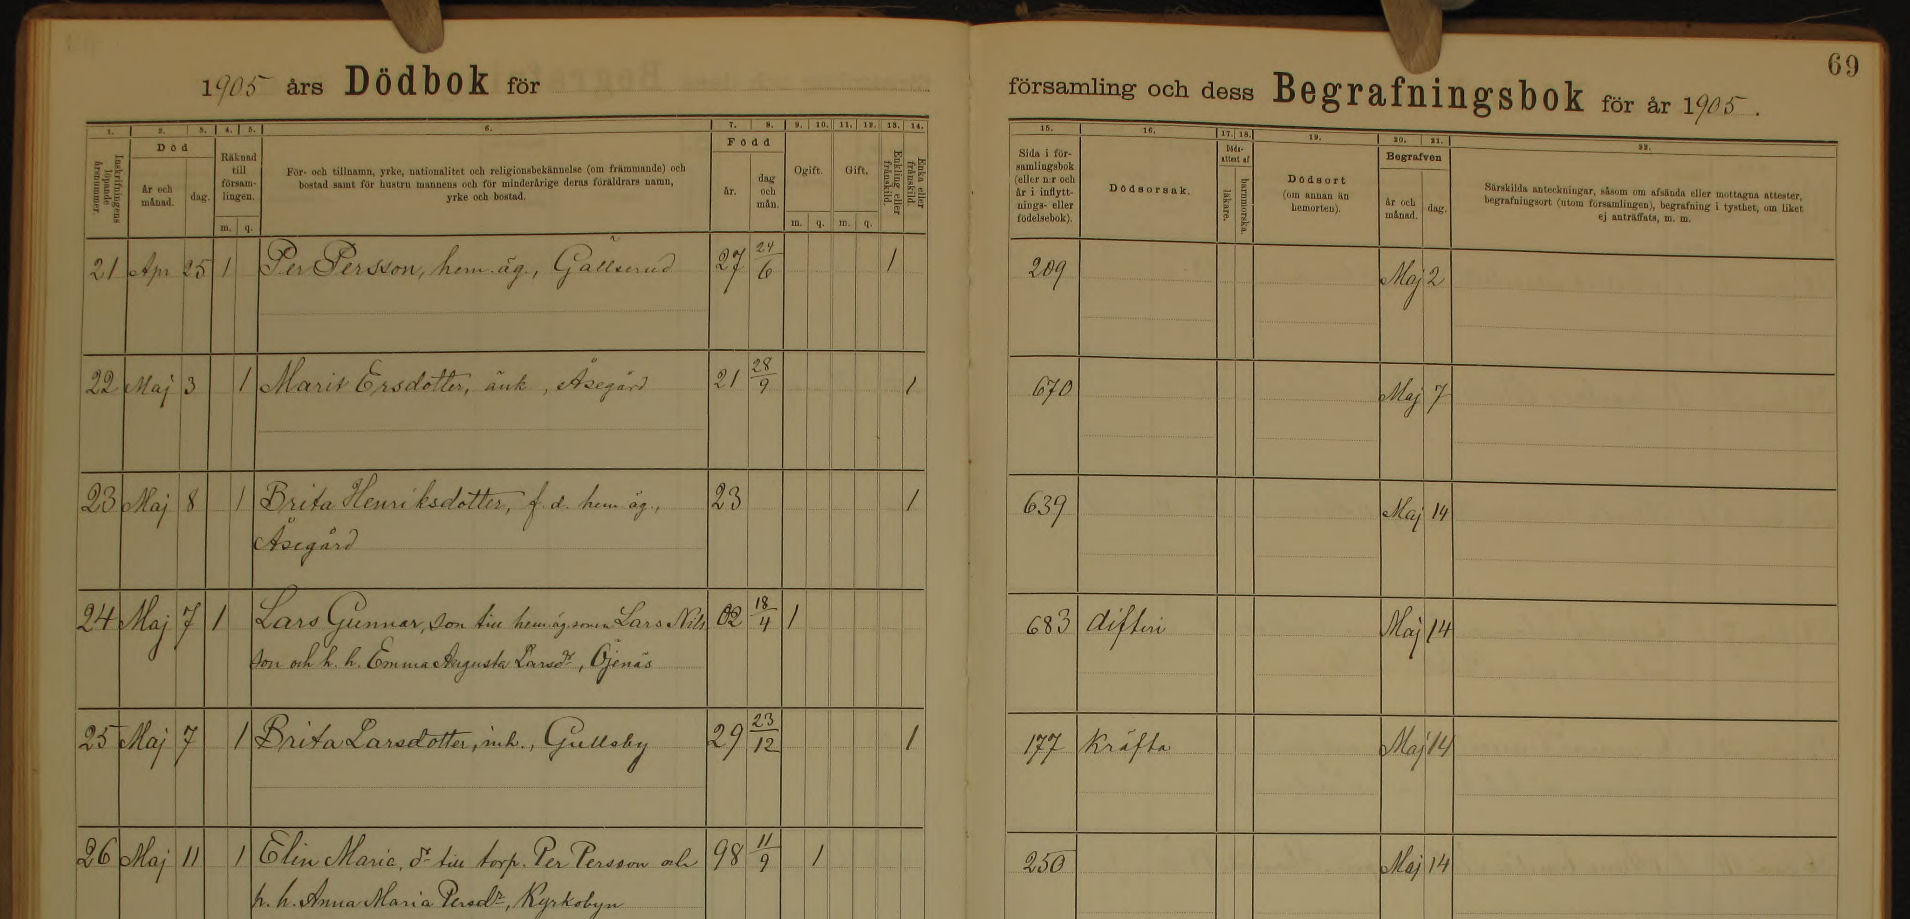 69
1905 års Dödbok för
församling och dess Begrafningsbok för år 1905.
1. 2. 3. 4. 5. 6. 7. 8. 9. 10. 11. 12. 13. 14.
Inskrifningens löpande årsnummer.
Död
år och månad.
dag.
Räknad till församlingen.
m. q.
För- och tillnamn, yrke, nationalitet och religionsbekännelse (om främmande) och
bostad samt för hustru mannens och för minderårige deras föräldrars namn,
yrke och bostad.
Född
år.
dag och mån.
Ogift. Gift.
m. q. m. q.
Enkling eller frånskild.
Enka eller frånskild.
15. 16. 17. 18. 19. 20. 21. 22.
Sida i för-
samlingsbok
(eller n:r och
år i inflytt-
nings- eller
födelsebok).
Dödsorsak.
Döds-
attest af
läkare.
barnmorska.
Dödsort
(om annan än
hemorten).
Begrafven
år och
månad.
dag.
Särskilda anteckningar, såsom om afsända eller mottagna attester,
begrafningsort (utom församlingen), begrafning i tysthet, om liket
ej anträffats, m. m.
21 Apr 25 1 Per Persson, hem.äg., Gallserud 27 24/6 1 209 Maj 2
22 Maj 3 1 Marit Ersdotter, änk, Åsegård 21 28/9 1 670 Maj 7
23 Maj 8 1 Brita Henriksdotter, f. d. hem.äg., 23 1 639 Maj 14
Åsegård
24 Maj 7 1 Lars Gunnar, son till hem.äg.sonen Lars Nils 02 18/4 1 683 difteri Maj 14
son och h. h. Emma Augusta Larsdr, Öjenäs
25 Maj 7 1 Brita Larsdotter, inh., Gullsby 29 23/12 1 177 kräfta Maj 14
26 Maj 11 1 Elin Maria, dr till torp. Per Persson och 98 11/9 1 250 Maj 14
h. h. Anna Maria Persdr, Kyrkobyn